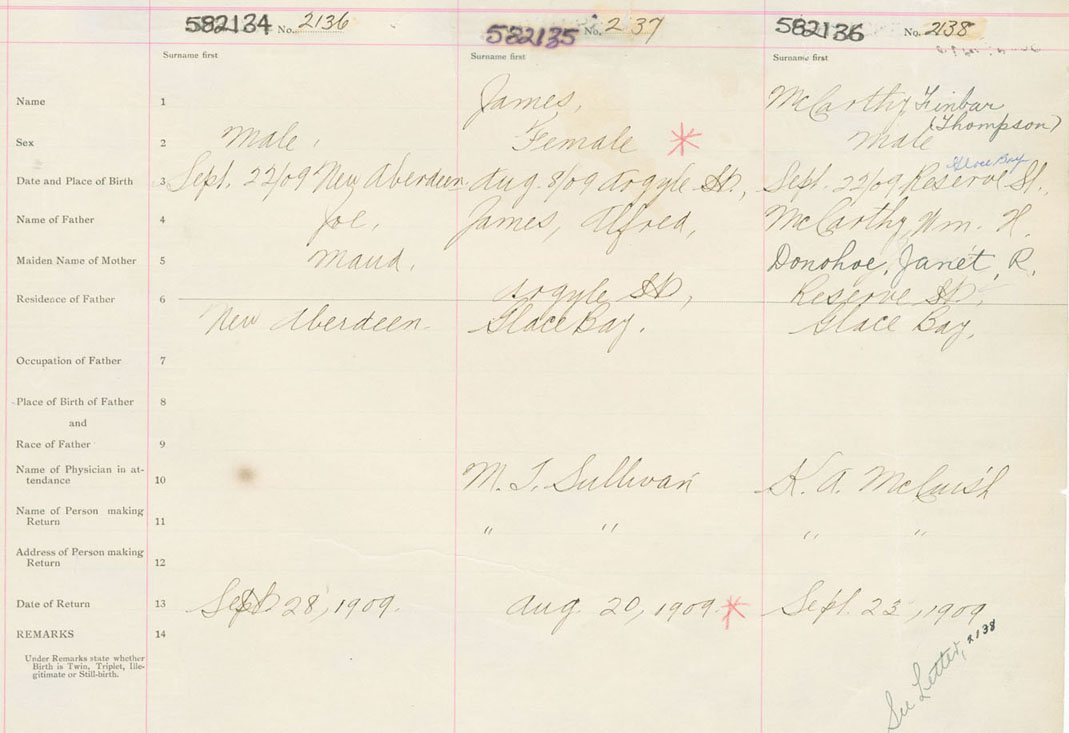 582134 No. 2136
582135 No. 2 37
582136 No. 2138
Surname first Surname first Surname first
Name 1 James, McCarthy, Finbar
(Thompson)
Sex 2 Male, Female * Male
Glace Bay
Date and Place of Birth 3 Sept. 22/09 New Aberdeen Aug. 8/09 Argyle St., Sept. 22/09 Reserve St.,
Name of Father 4 Joe, James, Alfred, McCarthy, Wm. H.
Maiden Name of Mother 5 Maud, Donohoe, Janet, R.
Residence of Father 6 Argyle St, Reserve St,
New Aberdeen Glace Bay. Glace Bay,
Occupation of Father 7
Place of Birth of Father 8
and
Race of Father 9
Name of Physician in at-
tendance 10 M. T. Sullivan K. A. McCuish
Name of Person making
Return 11 " " " "
Address of Person making
Return 12
Date of Return 13 Sept 28, 1909. Aug. 20, 1909. * Sept. 23, 1909
REMARKS 14
Under Remarks state whether
Birth is Twin, Triplet, Ille-
gitimate or Still-birth.
See Letter, 2138